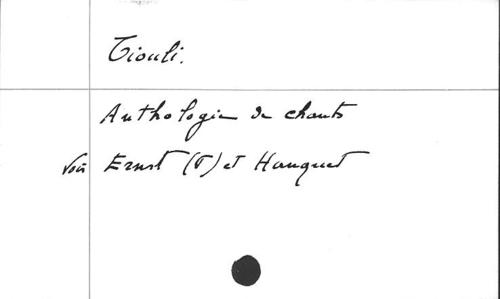 Tiouli.
Anthologie de chants
voir Ernst (T) et Hanquet